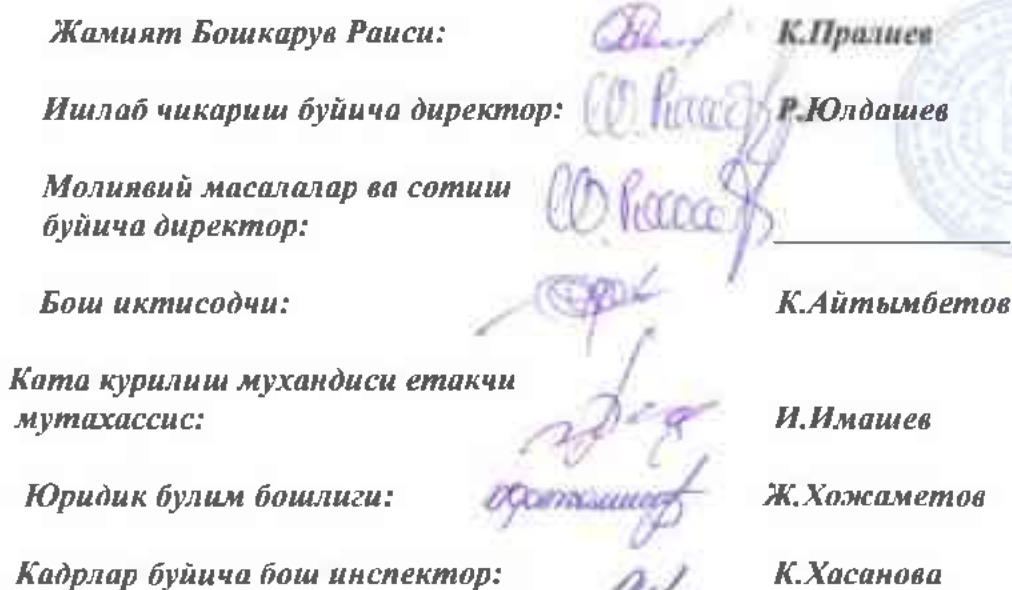 Жамият Бошкарув Раиси: К.Пралиев
Ишлаб чикариш буйича директор: Р.Юлдашев
Молиявий масалалар ва сотиш
буйича директор:
Бош иктисодчи: К.Айтымбетов
Ката курилиш мухандиси етакчи
мутахассис: И.Имашев
Юридик булим бошлиги: Ж.Хожаметов
Кадрлар буйича бош инспектор: К.Хасанова